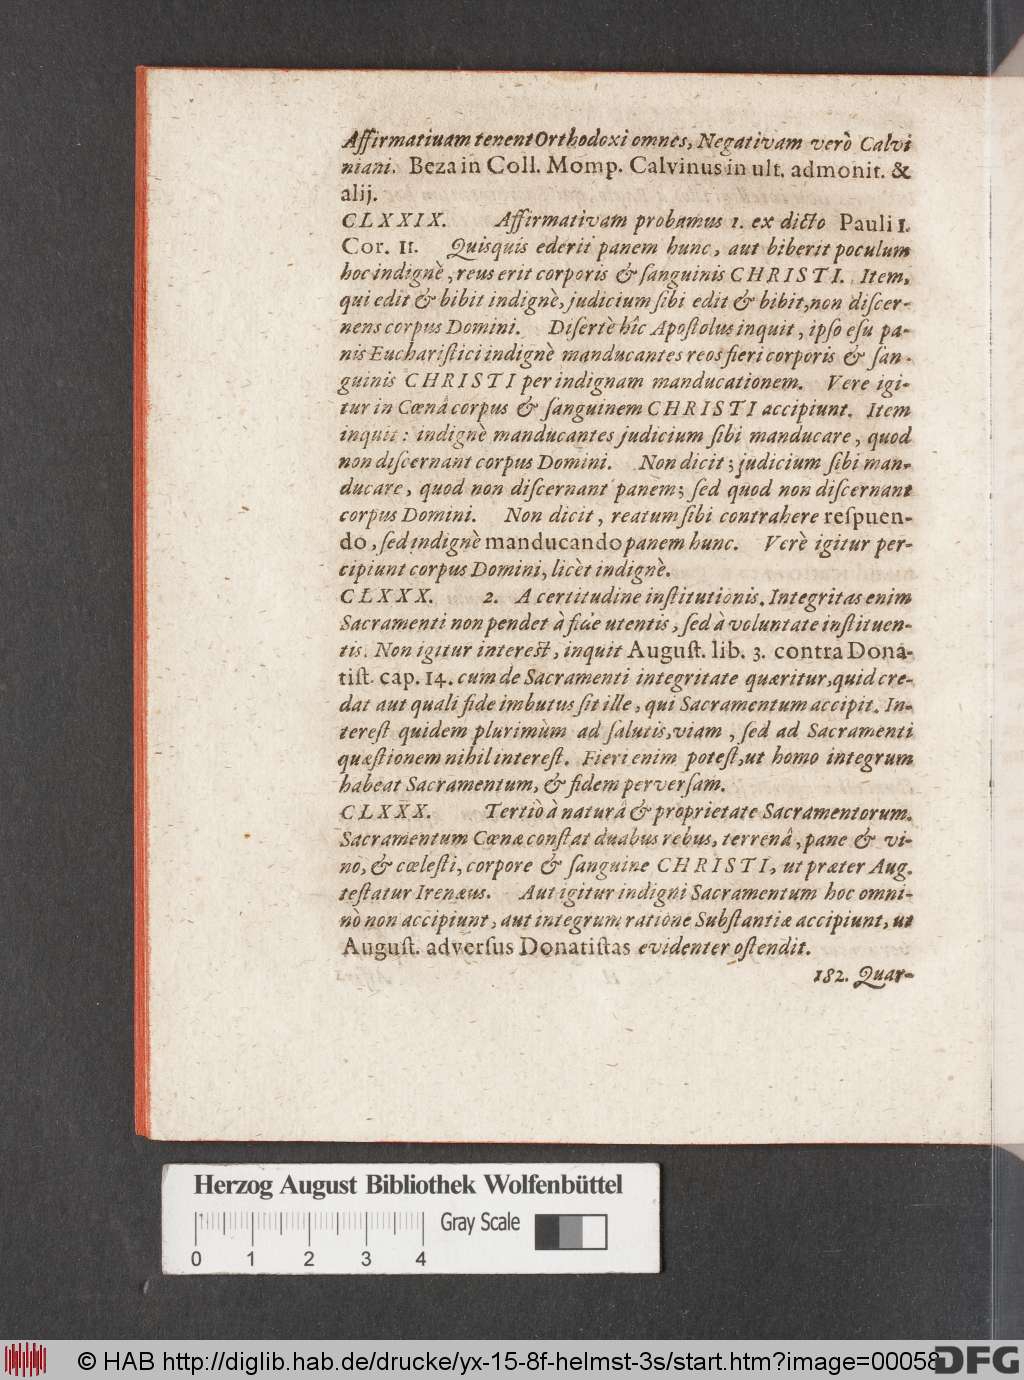 Affirmativam tenent Orthodoxi omnes, Negativam verò Calvi
niani. Beza in Coll. Momp. Calvinus in ult. admonit. &
alij.
CLXXIX. Affirmativam probamus 1. ex dicto Pauli 1.
Cor. 11. Quisquis ederit panem hunc, aut biberit poculum
hoc indignè, reus erit corporis & ſanguinis CHRISTI. Item,
qui edit & bibit indignè, judicium ſibi edit & bibit, non diſcer-
nens corpus Domini. Diſertè hîc Apoſtolus inquit, ipſo eſu pa-
nis Euchariſtici indignè manducantes reos fieri corporis & ſan-
guinis CHRISTI per indignam manducationem. Vere igi-
tur in Cœnâ corpus & ſanguinem CHRISTI accipiunt. Item
inquit: indignè manducantes judicium ſibi manducare, quod
non diſcernant corpus Domini. Non dicit; judicium ſibi man-
ducare, quod non diſcernant panem; ſed quod non diſcernant
corpus Domini. Non dicit, reatum ſibi contrahere reſpuen-
do, ſed indignè manducando panem hunc. Verè igitur per-
cipiunt corpus Domini, licèt indignè.
CLXXX. 2. A certitudine inſtitutionis. Integritas enim
Sacramenti non pendet à fide utentis, ſed à voluntate inſtituen-
tis. Non igitur intereſt, inquit Auguſt. lib. 3. contra Dona-
tiſt. cap. 14. cum de Sacramenti integritate quæritur, quid cre-
dat aut quali fide imbutus ſit ille, qui Sacramentum accipit. In-
tereſt quidem plurimùm ad ſalutis, viam, ſed ad Sacramenti
quæſtionem nihil intereſt. Fieri enim poteſt, ut homo integrum
habeat Sacramentum, & fidem perverſam.
CLXXX. Tertiò à naturâ & proprietate Sacramentorum.
Sacramentum Cœnæ conſtat duabus rebus, terrenâ, pane & vi-
no, & cœleſti, corpore & ſanguine CHRISTI, ut præter Aug.
teſtatur Irenæus. Aut igitur indigni Sacramentum hoc omni-
nò non accipiunt, aut integrum ratione Subſtantiæ accipiunt, ut
Auguſt. adverſus Donatiſtas evidenter oſtendit.
182. Quar-
Herzog August Bibliothek Wolfenbüttel
Gray Scale
0 1 2 3 4
© HAB http://diglib.hab.de/drucke/yx-15-8f-helmst-3s/start.htm?image=00058
DFG